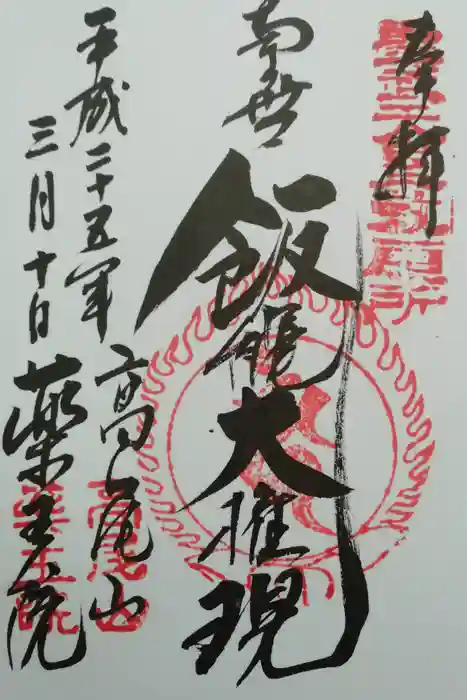 奉拝
南無
飯縄大権現
平成二十五年
三月十日
高尾山
薬王院